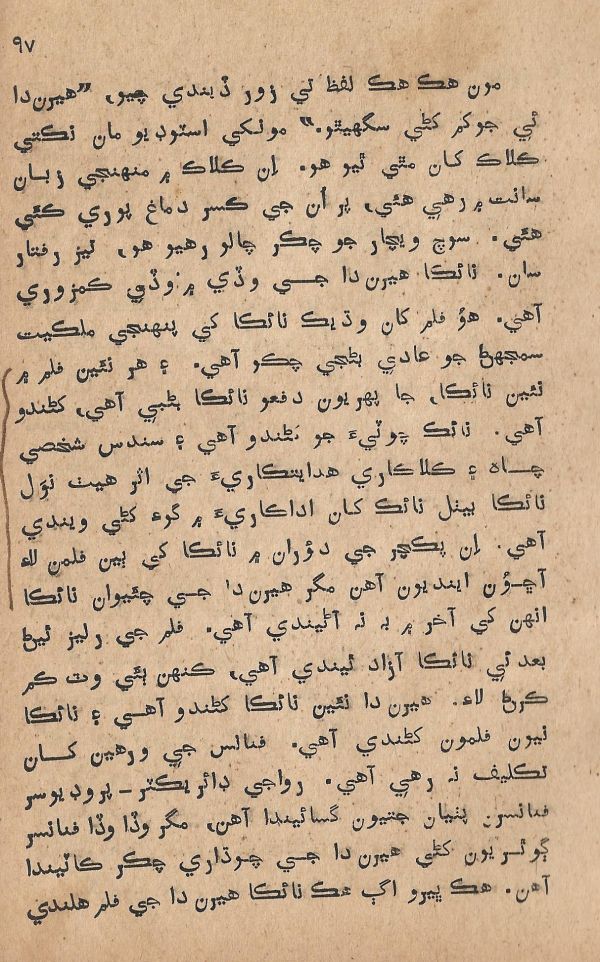 ٩٧
مون هڪ هڪ لفظ تي زور ڏيندي چيو، ”هيرن دا
ئي جوکم کڻي سگهيٿو.“ مونکي اسٽوڊيو مان نڪتي
ڪلاڪ کان مٿي ٿيو هو. اِن ڪلاڪ ۾ منهنجي زبان
سانت ۾ رهي هئي، پر اُن جي ڪسر دماغ پوري ڪئي
هئي. سوچ ويچار جو چڪر چالو رهيو هو، تيز رفتار
سان. نائڪا هيرن دا جي وڏي ۾ وڏي ڪمزوري
آهي. هوُ فلم کان وڌيڪ نائڪا کي پنهنجي ملڪيت
سمجهڻ جو عادي بڻجي چڪو آهي. ۽ هر نئين فلم ۾
نئين نائڪا، جا پهريون دفعو نائڪا بڻبي آهي، کڻندو
آهي. نائڪ چوٽيءَ جو کڻندو آهي ۽ سندس شخصي
چاه ۽ ڪلاڪاري هدايتڪاريءَ جي اثر هيٺ نوَل
نائڪا بيٺل نائڪ کان اداڪاريءَ ۾ گوءِ کڻي ويندي
آهي. اِن پڪچر جي دؤران ۾ نائڪا کي ٻين فلمن لاءِ
آڇوُن اينديون آهن مگر هيرن دا جي چئيوان نائڪا
انهن کي آخر ۾ به نہ آڻيندي آهي. فلم جي رليز ٿيڻ
بعد ئي نائڪا آزاد ٿيندي آهي، ڪنهن ٻئي وٽ ڪم
ڪرڻ لاءِ. هيرن دا نئين نائڪا کڻندو آهي ۽ نائڪا
نيون فلمون کڻندي آهي. فنانس جي ورهين کان
تڪليف نہ رهي آهي. رواجي ڊائريڪٽر - پروڊيوسر
فنانسرن پٺيان جتيون گسائيندا آهن، مگر وڏا وڏا فنانسر
ڳوٿريون کڻي هيرن دا جي چوڌاري چڪر ڪاٽيندا
آهن. هڪ ڀيرو اڳ هڪ نائڪا هيرن دا جي فلم هلندي